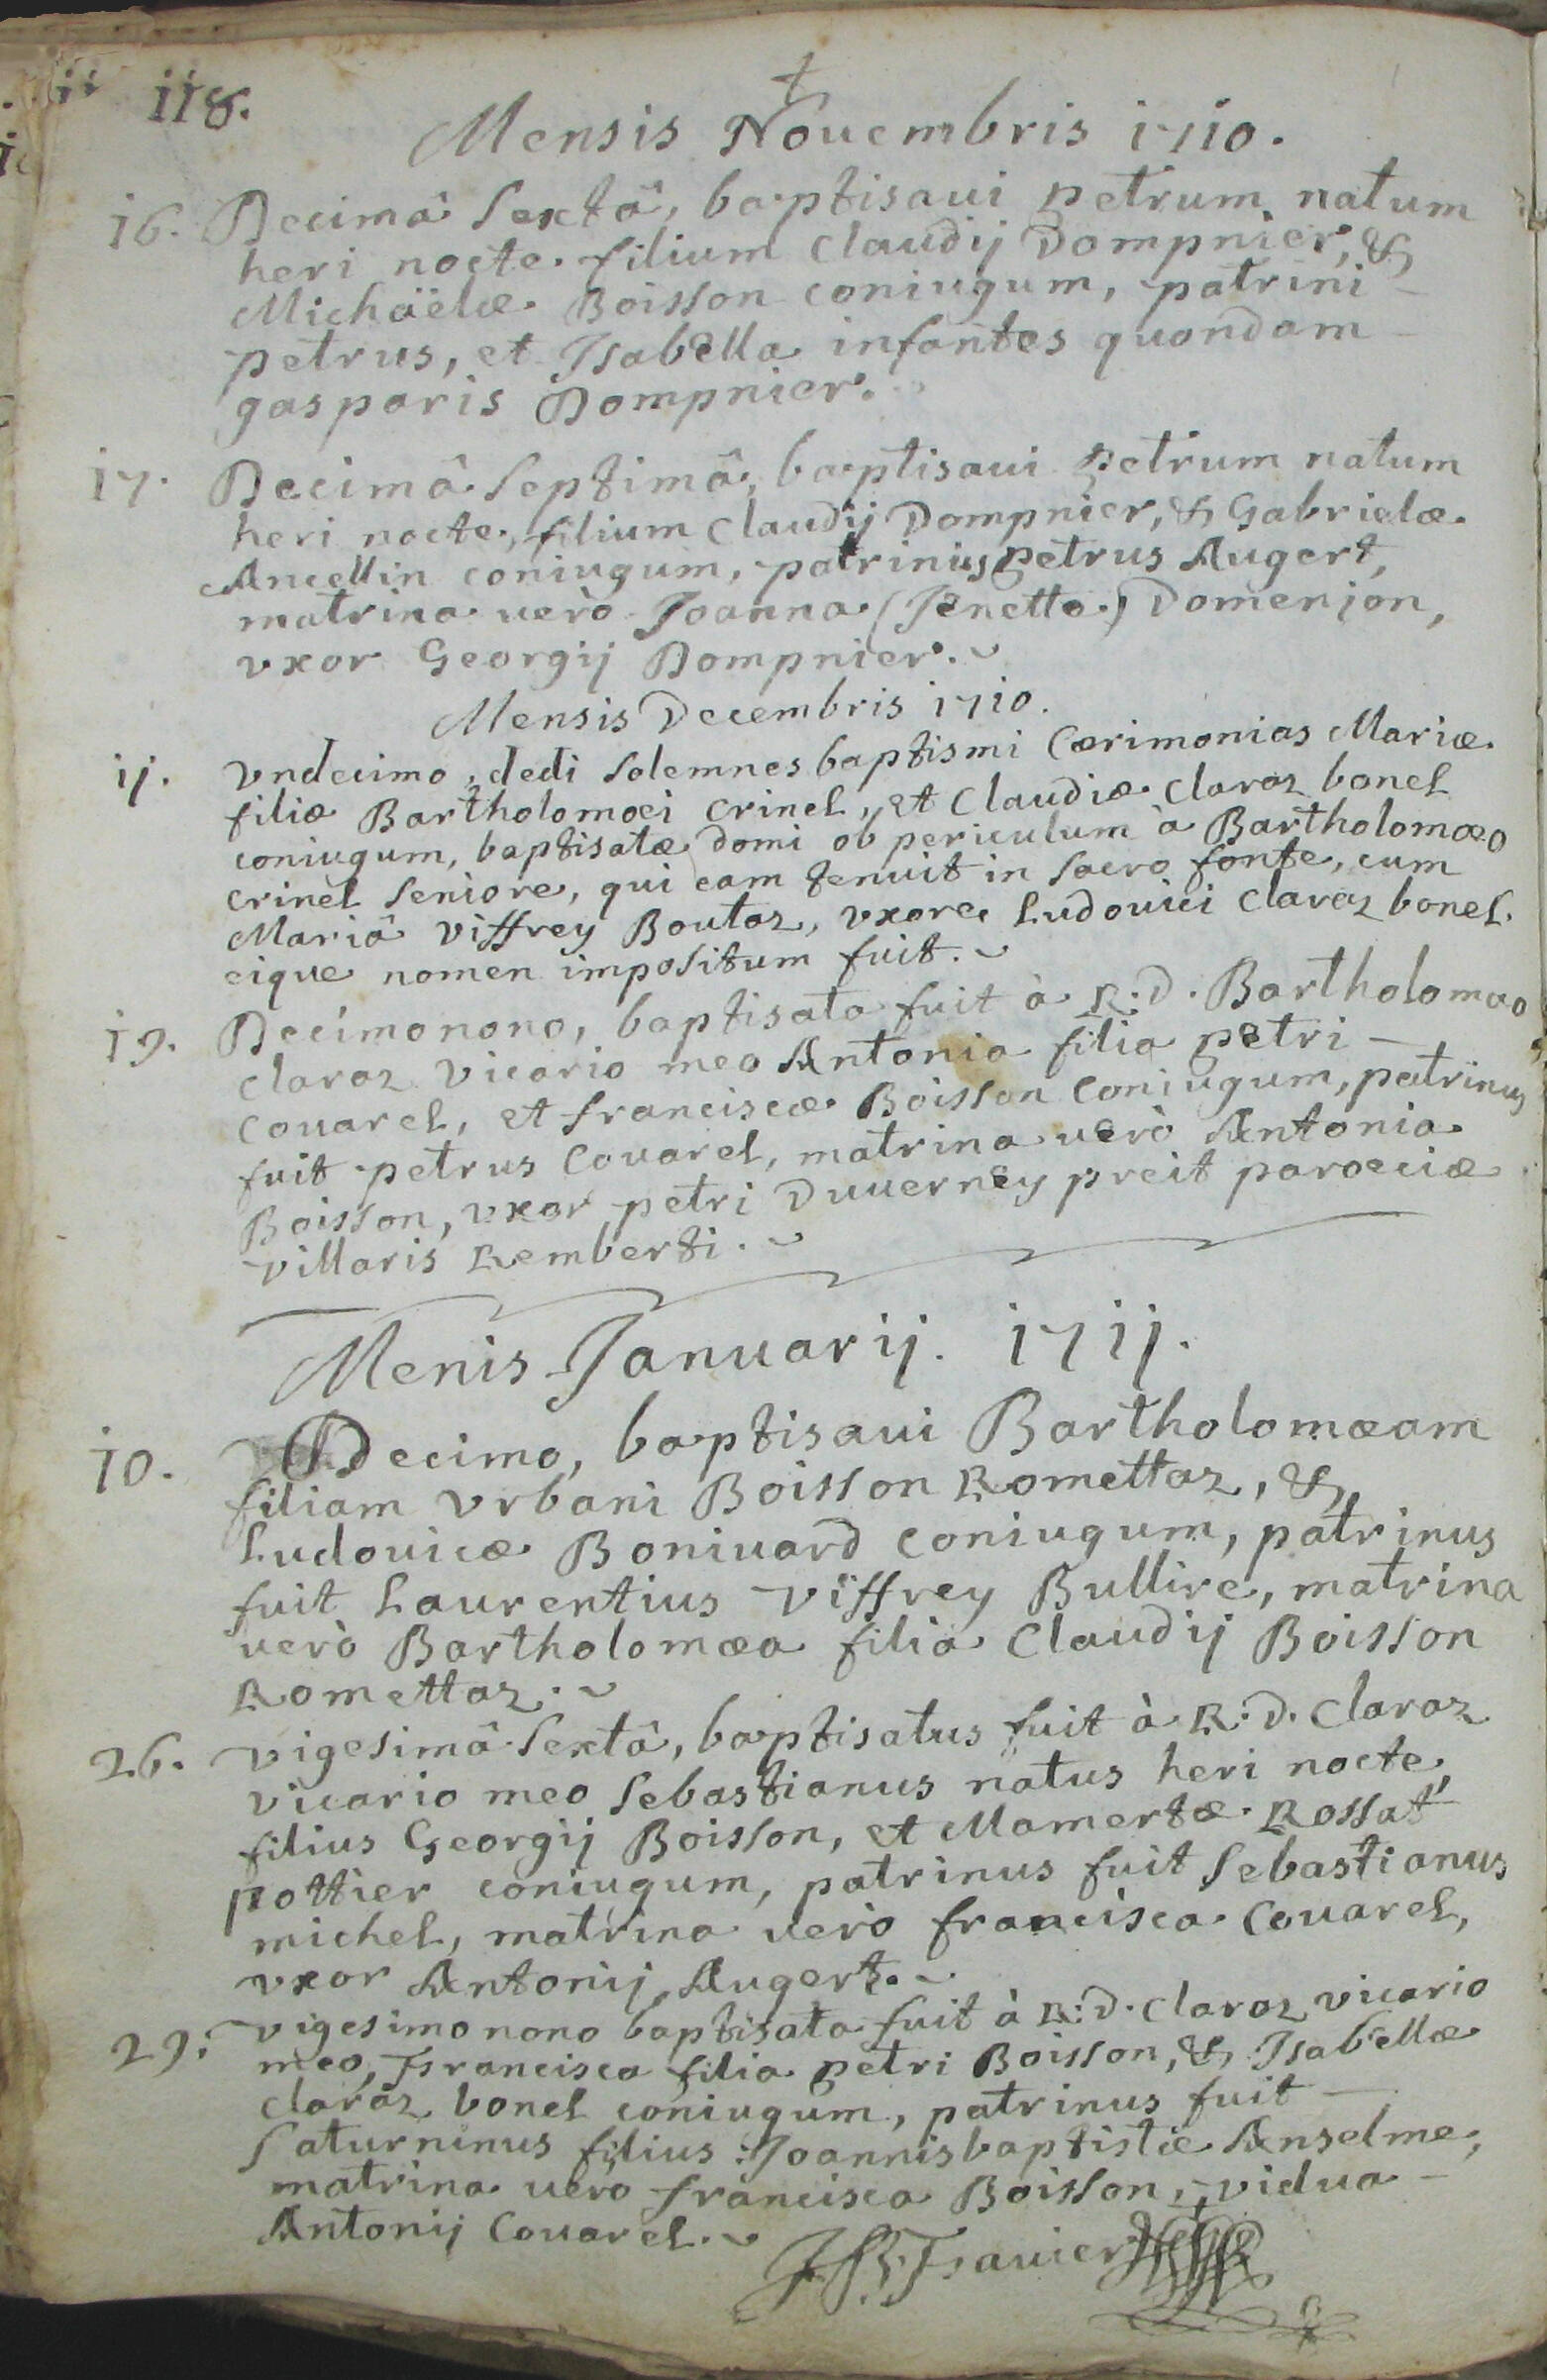 118.
Mensis Nouembris 1710.
16. Decimâ Sextâ, baptisaui petrum natum
heri nocte. filium Claudij Dompnier, &
Michäelæ Boisson coniugum, patrini
petrus, et Isabella infantes quondam
gasparis Dompnier.
17. Decimâ Septimâ, baptisaui Petrum natum
heri nocte, filium Claudij Dompnier, & Gabrielæ
Ancellin coniugum, patrinus petrus Augert,
matrina uerò Joanna (Jenetta) Domenjon,
vxor Georgij Dompnier.
Mensis Decembris 1710.
11. Vndecimo, dedi Solemnes baptismi Cærimonias Mariæ
filiæ Bartholomæi Crinel, et Claudiæ Claraz bonel
coniugum, baptisatæ domi ob periculum à Bartholomæo
crinel Seniore, qui eam tenuit in Sacro fonte, cum
Mariâ Viffrey Boutaz, vxore Ludouici Claraz bonel.
eique nomen impositum fuit.
19. Decimonono, baptisata fuit à R:D. Bartholomæo
Claraz Vicario meo Antonia filia petri
Couarel, et franciscæ Boisson Coniugum, patrinus
fuit petrus Couarel, matrina uerò Antonia
Boisson, vxor petri Duuerney preit paroeciæ
Villaris Remberti.
Menis Januarij. 1711.
10. Decimo, baptisaui Bartholomæam
filiam Vrbani Boisson Romettaz, &
Ludouicæ Boniuard coniugum, patrinus
fuit Laurentius Viffrey Bullire, matrina
uerò Bartholomæa filia Claudij Boisson
Romettaz.
26. Vigesimâ Sextâ, baptisatus fuit à R:D. Claraz
Vicario meo Sebastianus natus heri nocte,
filius Georgij Boisson, et Mamertæ Rossat
pottier coniugum, patrinus fuit Sebastianus
michel, matrina uerò francisca Couarel,
vxor Antonij Augert.
29. Vigesimo nono baptisata fuit à R:D. Claraz vicario
meo, Francisca filia petri Boisson, & Isabellæ
Claraz bonel coniugum, patrinus fuit
Saturninus filius Joannisbaptistæ Anselme,
matrina uerò francisca Boisson, vidua
Antonij Couarel.